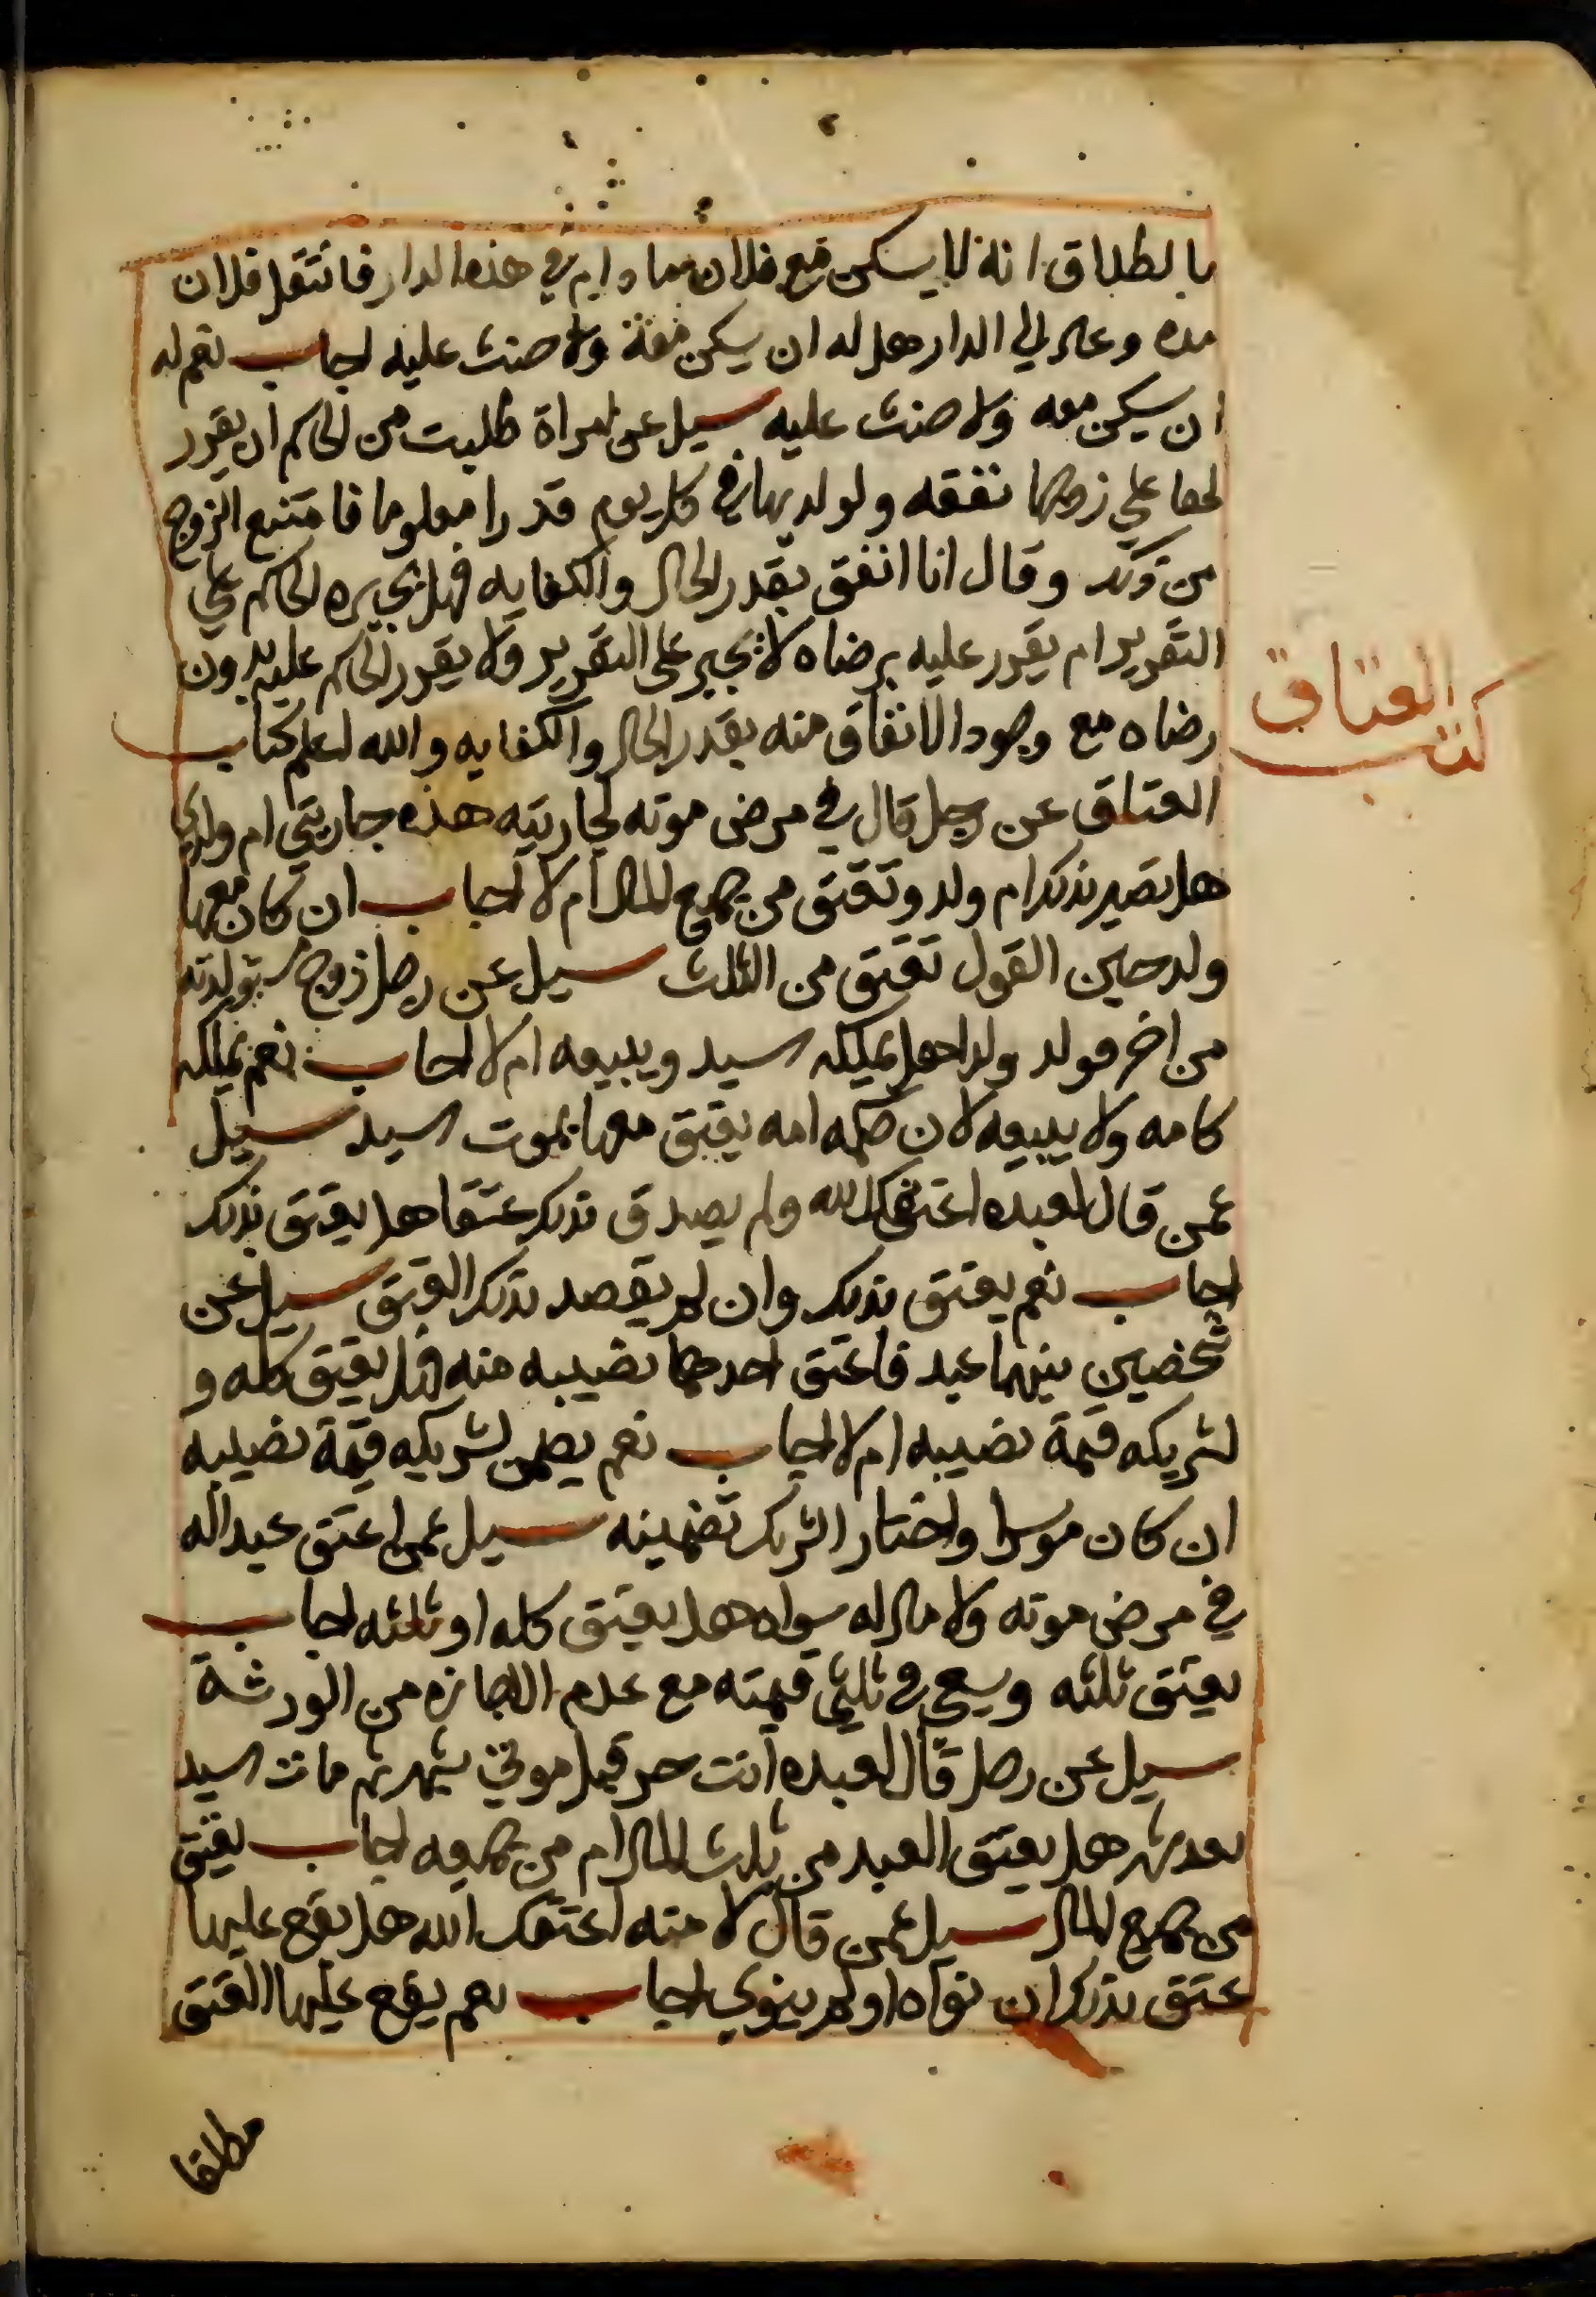 بالطلاق انه لا يسكن مع فلان ما دام في هذه الدار فانتقل فلان
مده وعاد الي الدار هل له ان يسكن معه ولا حنث عليه اجاب نعم له
ان يسكن معه ولا حنث عليه سيل عن امراة طلبت من الحاكم ان يقرر
لها علي زوجها نفقه ولولديها في كل يوم قدرا معلوما فامتنع الزوج
من ذلك وقال انا انفق بقدر الحال والكفايه فهل يجبره الحاكم علي
التقرير ام يقرر عليه برضاه لا يجبر على التقرير ولا يقرر الحاكم عليه بدون
رضاه مع وجود الانفاق منه بقدر الحال والكفايه والله اعلم كتاب
كتاب العتاق
العتاق عن رجل قال في مرض موته لجاريته هذه جاريتي ام ولدي
هل تصير بذلك ام ولد وتعتق من جميع المال ام لا اجاب ان كان معها
ولد حين القول تعتق من الثلث سيل عن رجل زوج مستولدته
من اخر فولد ولدا هل يملكه السيد ويبيعه ام لا اجاب نعم يملكه
كامه ولا يبيعه لان حكمه امه يعتق معها بموت السيد سيل
عمن قال لعبده اعتقك الله ولم يصدق بذلك عتقا هل يعتق بذلك
اجاب نعم يعتق بذلك وان لم يقصد بذلك العتق سيل عن
شخصين بينهما عبد فاعتق احدهما نصيبه منه فهل يعتق كله و
لشريكه قيمة نصيبه ام لا اجاب نعم يضمن لشريكه قيمة نصيبه
ان كان موسرا واختار الشريك تضمينه سيل عمن اعتق عبدا له
في مرض موته ولا مال له سواه هل يعتق كله او ثلثه اجاب
يعتق ثلثه ويسعي في ثلثي قيمته مع عدم الاجازه من الورثة
سيل عن رجل قال لعبده انت حر قبل موتي بشهر ثم مات السيد
بعد شهر هل يعتق العبد من ثلث المال ام من جميعه اجاب يعتق
من جميع المال سيل عمن قال لامته اعتقك الله هل يقع عليها
عتق بذلك ان نواه او لم ينوي اجاب نعم يقع عليها العتق
مطلقا